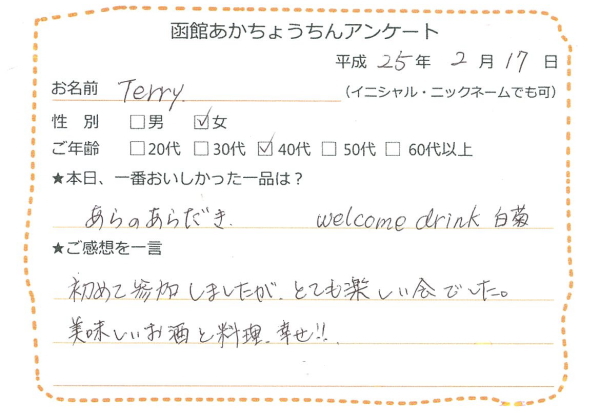 函館あかちょうちんアンケート
平成 25 年 2 月 17 日
お名前 Terry. (イニシャル・ニックネームでも可)
性 別 □男 ☑女
ご年齢 □20代 □30代 ☑40代 □50代 □ 60代以上
★本日、一番おいしかった一品は？
あらのあらだき. welcome drink 白菊
★ご感想を一言
初めて参加しましたが、とても楽しい会でした。
美味しいお酒と料理、幸せ!!